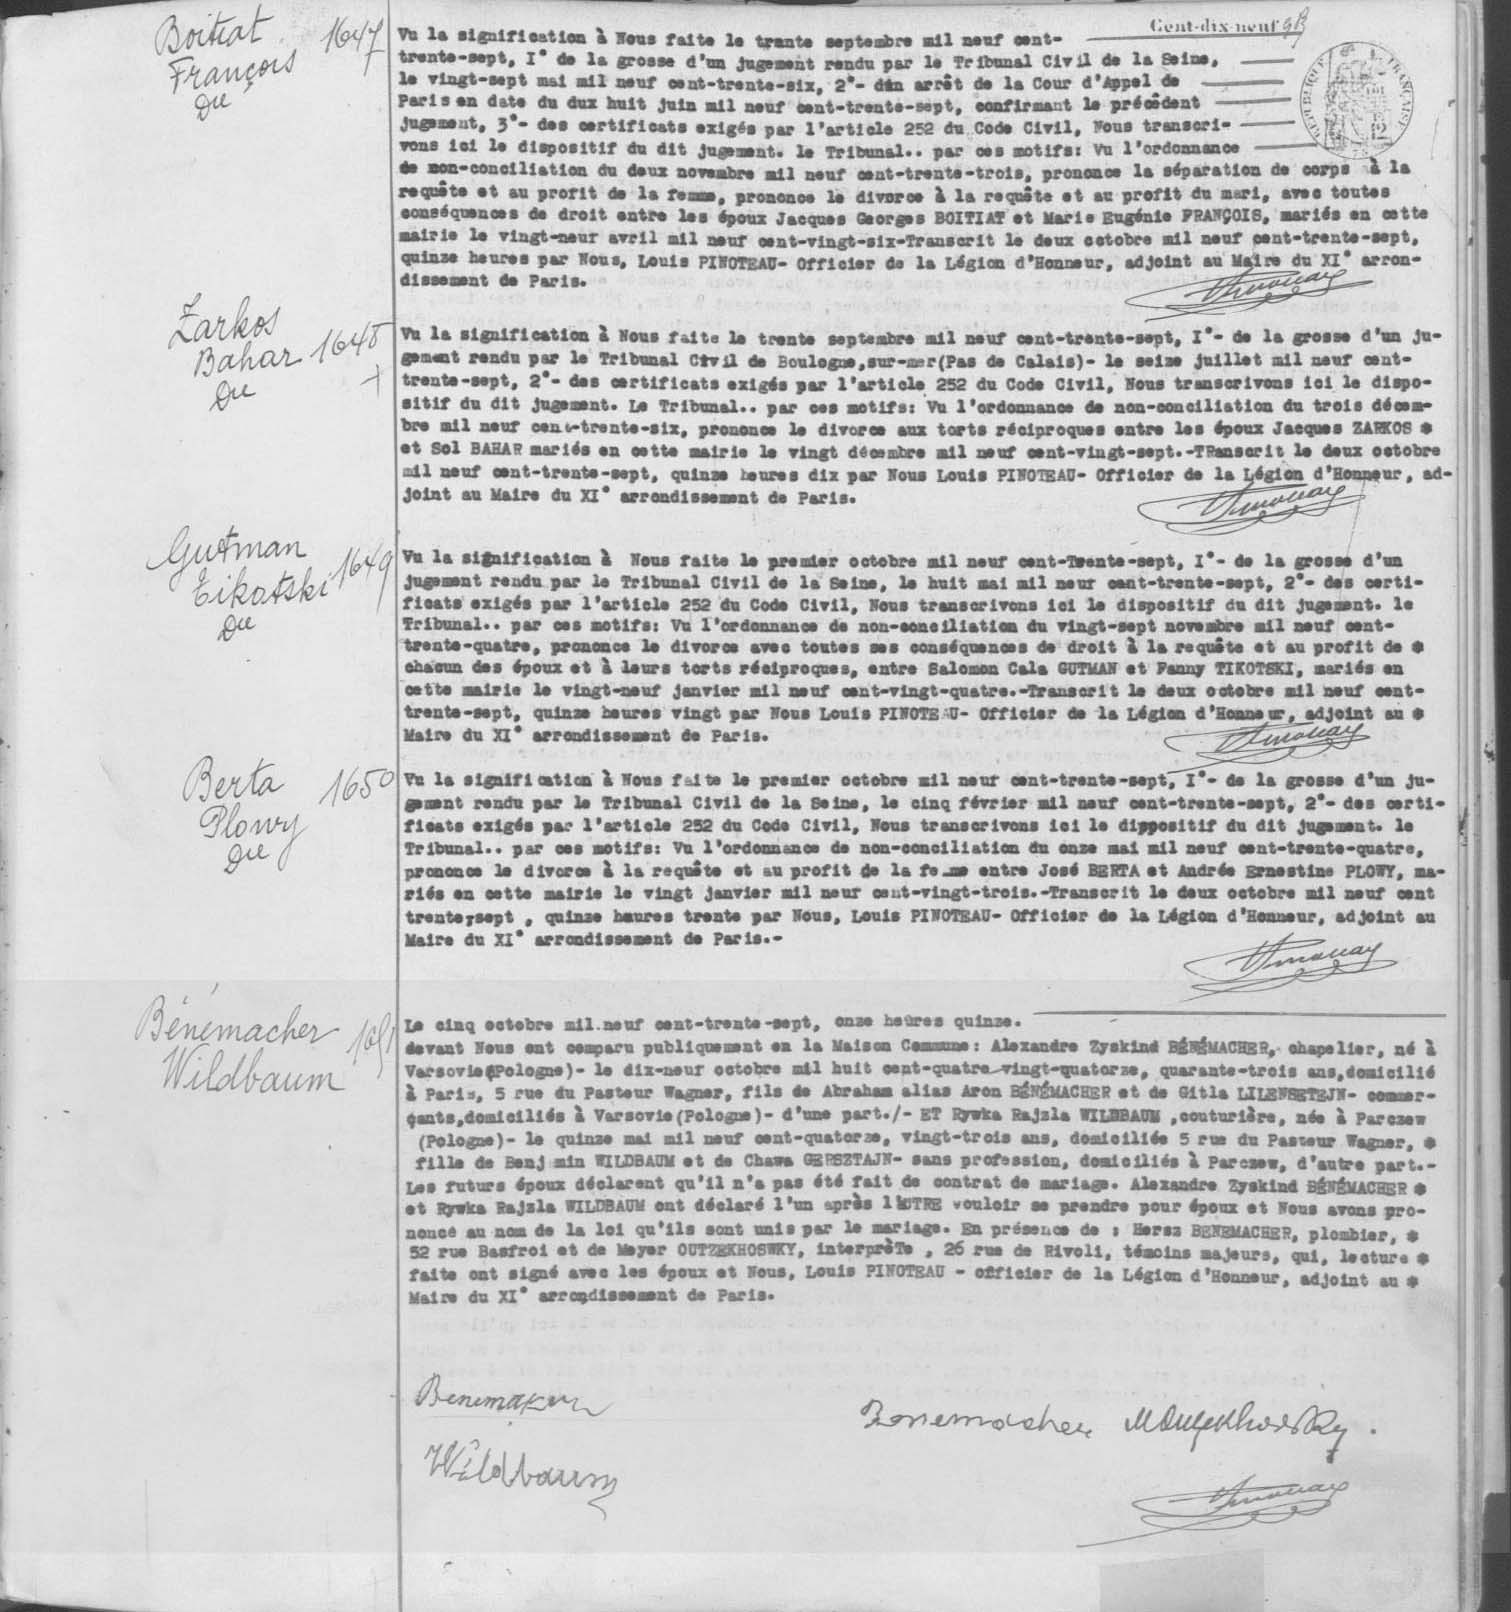 Cent-dix-neuf
Boitiat
François
Die
1647
Vu la signification à Nous faite le trente septembre mil neuf cent-
trente-sept, I° de la grosse d'un jugement rendu par le Tribunal Civil de la Seine,
le vingt-sept mai mil neuf cent-trente-six, 2°- dun arrêt de la Cour d'Appel de
Paris en date du dux huit juin mil neuf cent-trente-sept, confirmant le précédent
jugement, 3°- des certificats exigés par l'article 252 du Code Civil, Nous transcri-
vons ici le dispositif du dit jugement. le Tribunal.. par ces motifs: Vu l'ordonnance
de non-conciliation du deux novembre mil neuf cent-trente-trois, prononce la séparation de corps à la
requête et au profit de la femme, prononce le divorce à la requête et au profit du mari, avec toutes
conséquences de droit entre les époux Jacques Georges BOITIAT et Marie Eugénie FRANÇOIS, mariés en cette
mairie le vingt-neuf avril mil neuf cent-vingt-six-Transcrit le deux octobre mil neuf cent-trente-sept,
quinze heures par Nous, Louis PINOTEAU- Officier de la Légion d'Honneur, adjoint au Maire du XI° arron-
dissement de Paris.
RÉPUBLIQUE FRANÇAISE
Zarkos
Bahar
Die
1648
Vu la signification à Nous faite le trente septembre mil neuf cent-trente-sept, I°- de la grosse d'un ju-
gement rendu par le Tribunal Civil de Boulogne,sur-mer(Pas de Calais)- le seize juillet mil neuf cent-
trente-sept, 2°- des certificats exigés par l'article 252 du Code Civil, Nous transcrivons ici le dispo-
sitif du dit jugement. Le Tribunal.. par ces motifs: Vu l'ordonnance de non-conciliation du trois décem-
bre mil neuf cent-trente-six, prononce le divorce aux torts réciproques entre les époux Jacques ZARKOS *
et Sol BAHAR mariés en cette mairie le vingt décembre mil neuf cent-vingt-sept.-TRanscrit le deux octobre
mil neuf cent-trente-sept, quinze heures dix par Nous Louis PINOTEAU- Officier de la Légion d'Honneur, ad-
joint au Maire du XI° arrondissement de Paris.
Gutman
Tikotski
Die
1649
Vu la signification à Nous faite le premier octobre mil neuf cent-Trente-sept, I°- de la grosse d'un
jugement rendu par le Tribunal Civil de la Seine, le huit mai mil neuf cent-trente-sept, 2°- des certi-
ficats exigés par l'article 252 du Code Civil, Nous transcrivons ici le dispositif du dit jugement. le
Tribunal.. par ces motifs: Vu l'ordonnance de non-conciliation du vingt-sept novembre mil neuf cent-
trente-quatre, prononce le divorce avec toutes ses conséquences de droit à la requête et au profit de *
chacun des époux et à leurs torts réciproques, entre Salomon Cala GUTMAN et Fanny TIKOTSKI, mariés en
cette mairie le vingt-neuf janvier mil neuf cent-vingt-quatre.-Transcrit le deux octobre mil neuf cent-
trente-sept, quinze heures vingt par Nous Louis PINOTEAU- Officier de la Légion d'Honneur, adjoint au *
Maire du XI° arrondissement de Paris.
Berta
Plowy
Die
1650
Vu la signification à Nous faite le premier octobre mil neuf cent-trente-sept, I°- de la grosse d'un ju-
gement rendu par le Tribunal Civil de la Seine, le cinq février mil neuf cent-trente-sept, 2°- des certi-
ficats exigés par l'article 252 du Code Civil, Nous transcrivons ici le dippositif du dit jugement. le
Tribunal.. par ces motifs: Vu l'ordonnance de non-conciliation du onze mai mil neuf cent-trente-quatre,
prononce le divorce à la requête et au profit de la fe me entre José BERTA et Andrée Ernestine PLOWY, ma-
riés en cette mairie le vingt janvier mil neuf cent-vingt-trois.-Transcrit le deux octobre mil neuf cent
trente,sept , quinze heures trente par Nous, Louis PINOTEAU- Officier de la Légion d'Honneur, adjoint au
Maire du XI° arrondissement de Paris.-
Bénémacher
Wildbaum
1651
Le cinq octobre mil neuf cent-trente-sept, onze heures quinze.
devant Nous ont comparu publiquement en la Maison Commune: Alexandre Zyskind BÉNÉMACHER, chapelier, né à
Varsovie(Pologne)- le dix-neuf octobre mil huit cent-quatre-vingt-quatorze, quarante-trois ans,domicilié
à Paris, 5 rue du Pasteur Wagner, fils de Abraham alias Aron BÉNÉMACHER et de Gitla LILENSETEJN- commer-
çants,domiciliés à Varsovie(Pologne)- d'une part./- ET Rywka Rajzla WILDBAUM ,couturière, née à Parczew
(Pologne)- le quinze mai mil neuf cent-quatorze, vingt-trois ans, domiciliée 5 rue du Pasteur Wagner, *
fille de Benj min WILDBAUM et de Chawa GERSZTAJN- sans profession, domiciliés à Parczew, d'autre part.-
Les futurs époux déclarent qu'il n'a pas été fait de contrat de mariage. Alexandre Zyskind BÉNÉMACHER *
et Rywka Rajzla WILDBAUM ont déclaré l'un après l'UTRE vouloir se prendre pour époux et Nous avons pro-
noncé au nom de la loi qu'ils sont unis par le mariage. En présence de : Hersz BENEMACHER, plombier, *
52 rue Basfroi et de Meyer OUTZEKHOSWKY, interprèTe , 26 rue de Rivoli, témoins majeurs, qui, lecture *
faite ont signé avec les époux et Nous, Louis PINOTEAU - officier de la Légion d'Honneur, adjoint au *
Maire du XI° arrondissement de Paris.
Benemaker
Benemacher
Wildbaum